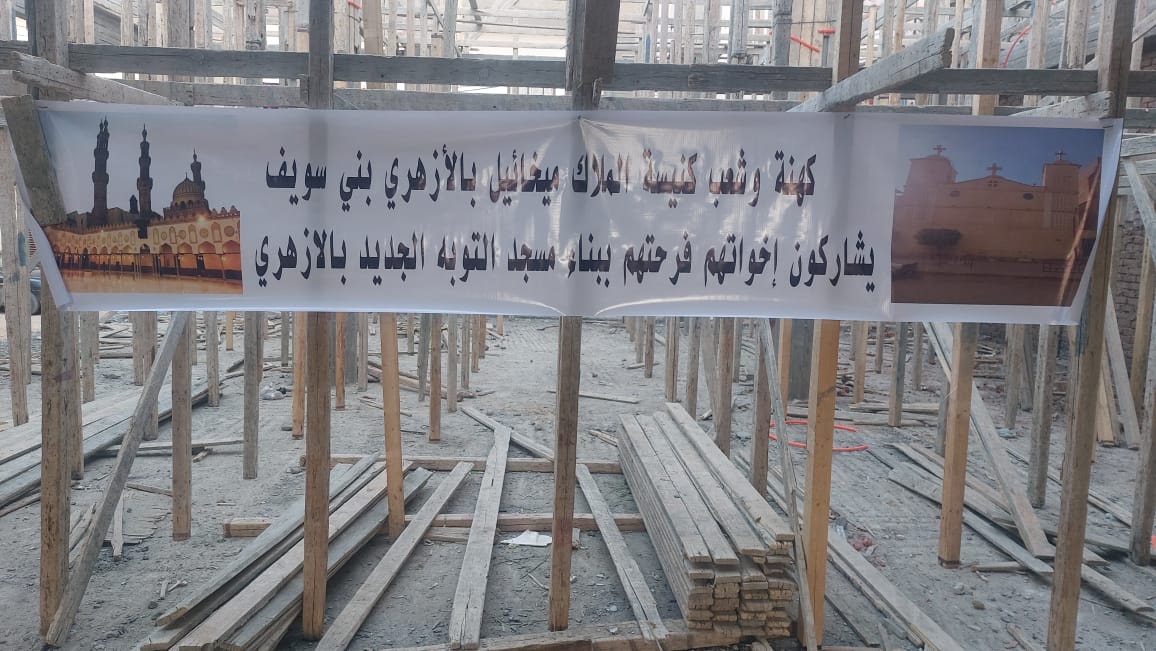 كهنة وشعب كنيسة الملاك ميخائيل بالأزهري بني سويف
يشاركون إخواتهم فرحتهم ببناء مسجد التوبه الجديد بالازهري